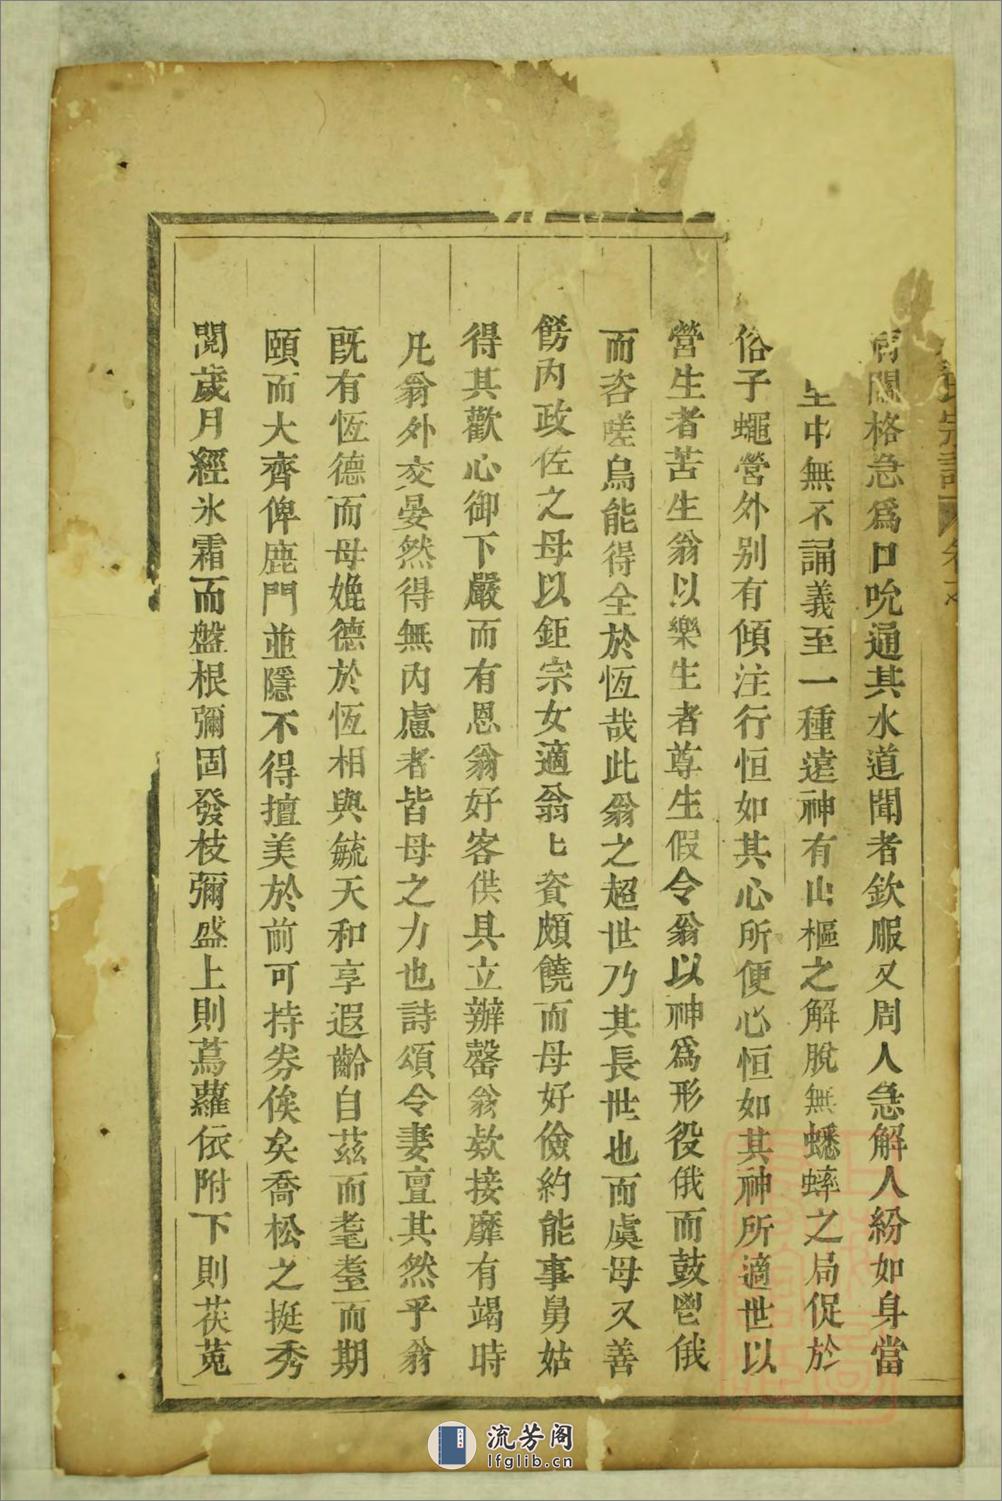 關格急爲口吮通其水道聞者欽服又周人急解人紛如身當
中無不誦義至一種遠神有山樞之解脫無蟋蟀之局促於
俗子蠅營外别有傾注行恒如其心所便心恒如其神所適世以
營生者苦生翁以樂生者尊生假令翁以神爲形役俄而鼓鬯俄
而咨嗟烏能得全於恆哉此翁之超世乃其長世也而虞母又善
餝內政佐之母以鉅宗女適翁匕賫頗饒而母好儉約能事舅姑
得其歡心御下嚴而有恩翁好客供具立辦罄翁欵接靡有竭時
凡翁外交晏然得無內慮者皆母之力也詩頌令妻亶其然乎翁
旣有恆德而母娩德於恆相與毓天和享遐齡自茲而耄耋而期
頤而大齊俾鹿門並隱不得擅美於前可持券俟矣喬松之挺秀
閱歲月經氷霜而盤根彌固發枝彌盛上則蔦蘿依附下則茯菟
流芳阁
lfglib.cn